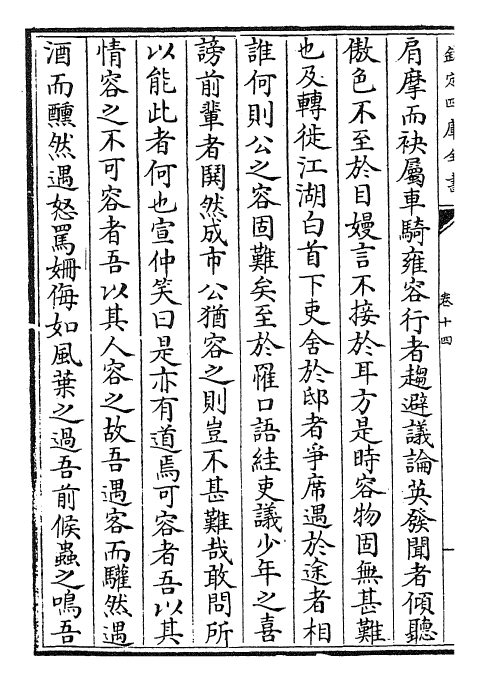 欽定四庫全書
卷十四
肩摩而袂屬車騎雍容行者趨避議論英發聞者傾聽
傲色不至於目嫚言不接於耳方是時容物固無甚難
也及轉徙江湖白首下吏舍於邸者爭席遇於途者相
誰何則公之容固難矣至於罹口語絓吏議少年之喜
謗前輩者鬨然成市公猶容之則豈不甚難哉敢問所
以能此者何也宣仲笑曰是亦有道焉可容者吾以其
情容之不可容者吾以其人容之故吾遇客而驩然遇
酒而醺然遇怒罵姍侮如風葉之過吾前候蟲之鳴吾